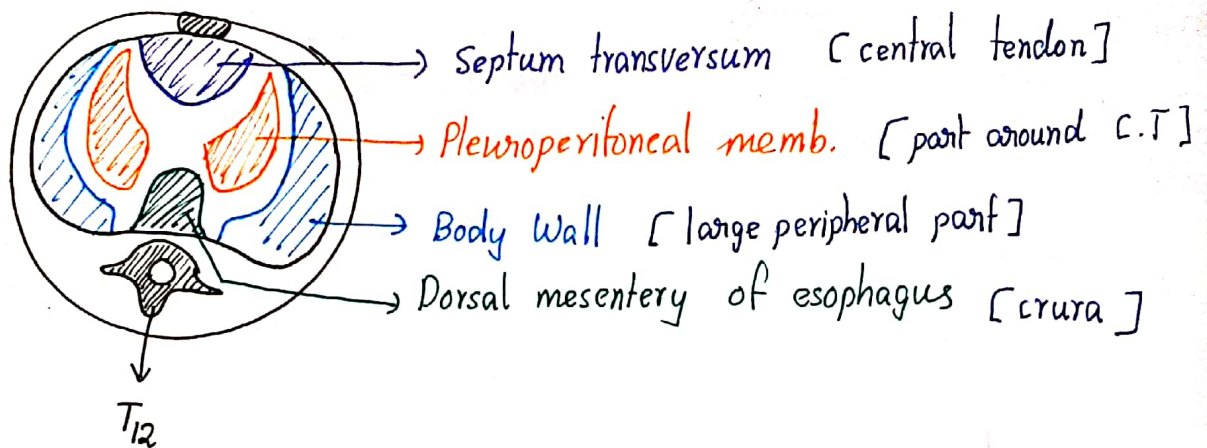 Septum transversum [central tendon]
Pleuroperitoneal memb. [part around C.T]
Body Wall [large peripheral part]
Dorsal mesentery of esophagus [crura]
T12